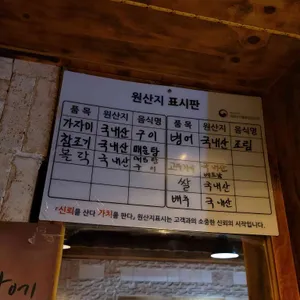 원산지 표시판
품목 원산지 음식명 품목 원산지 음식명
가자미 국내산 구이 병어 국내산 조림
참조기 국내산 매운탕
볼락 국내산 구이
쌀 국내산
배추 국내산
「신뢰를 산다 가치를 판다」 원산지표시는 고객과의 소중한 신뢰의 시작입니다.